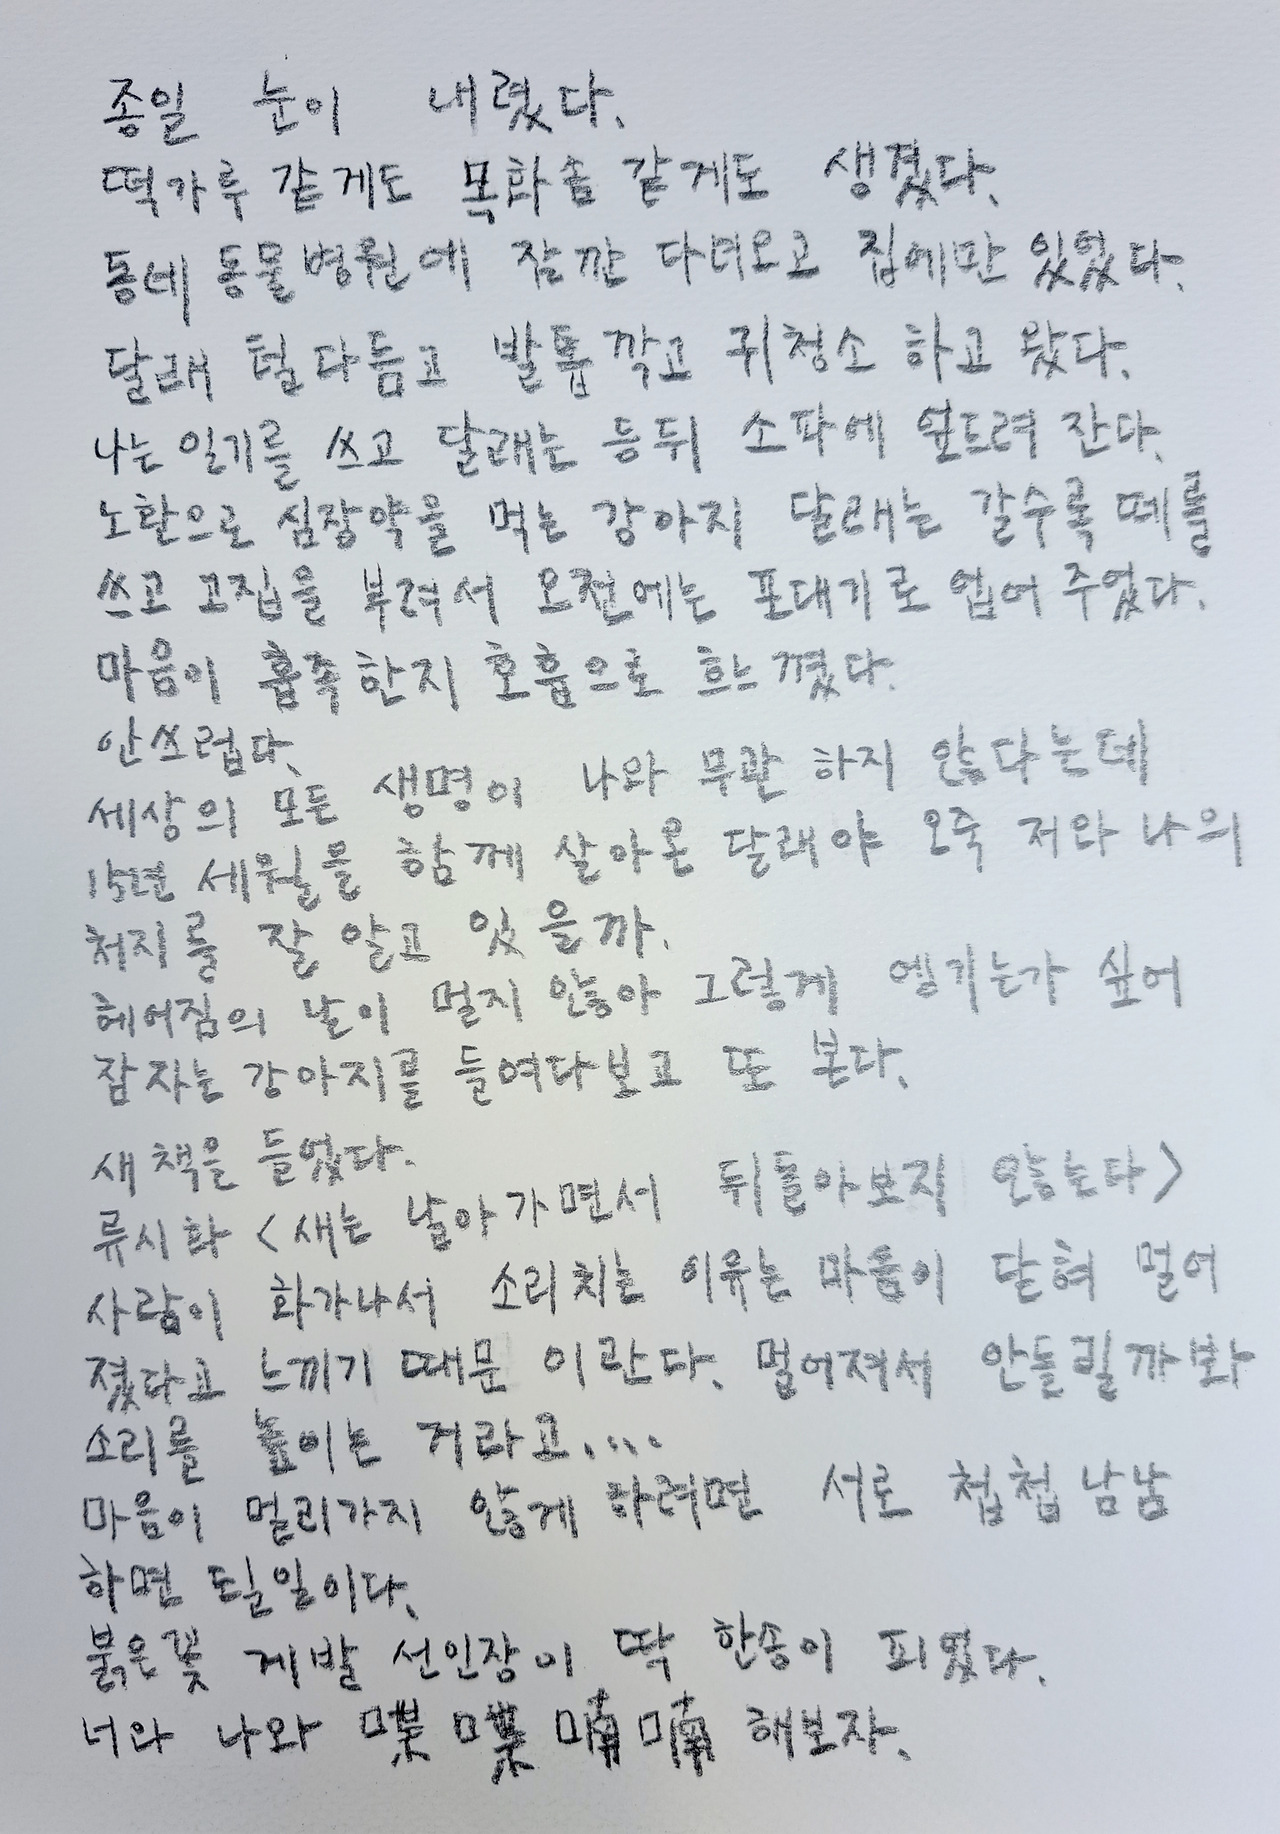 종일 눈이 내렸다.
떡가루 같게도 목화솜 같게도 생겼다.
동네 동물병원에 잠깐 다녀오고 집에만 있었다.
달래 털 다듬고 발톱 깎고 귀청소 하고 왔다.
나는 일기를 쓰고 달래는 등뒤 소파에 엎드려 잔다.
노환으로 심장약을 먹는 강아지 달래는 갈수록 떼를
쓰고 고집을 부려서 오전에는 포대기로 업어 주었다.
마음이 흡족한지 호흡으로 흐느꼈다.
안쓰럽다.
세상의 모든 생명이 나와 무관 하지 않다는데
15년 세월을 함께 살아온 달래야 오죽 저와 나의
처지를 잘 알고 있을까.
헤어짐의 날이 멀지 않아 그렇게 엥기는가 싶어
잠자는 강아지를 들여다보고 또 본다.
새 책을 들었다.
류시화 <새는 날아가면서 뒤돌아보지 않는다>
사람이 화가나서 소리치는 이유는 마음이 닫혀 멀어
졌다고 느끼기 때문 이란다. 멀어져서 안들릴까봐
소리를 높이는 거라고....
마음이 멀리가지 않게 하려면 서로 첩첩남남
하면 될일이다.
붉은꽃 게발 선인장이 딱 한송이 피었다.
너와 나와 喋喋喃喃 해보자.